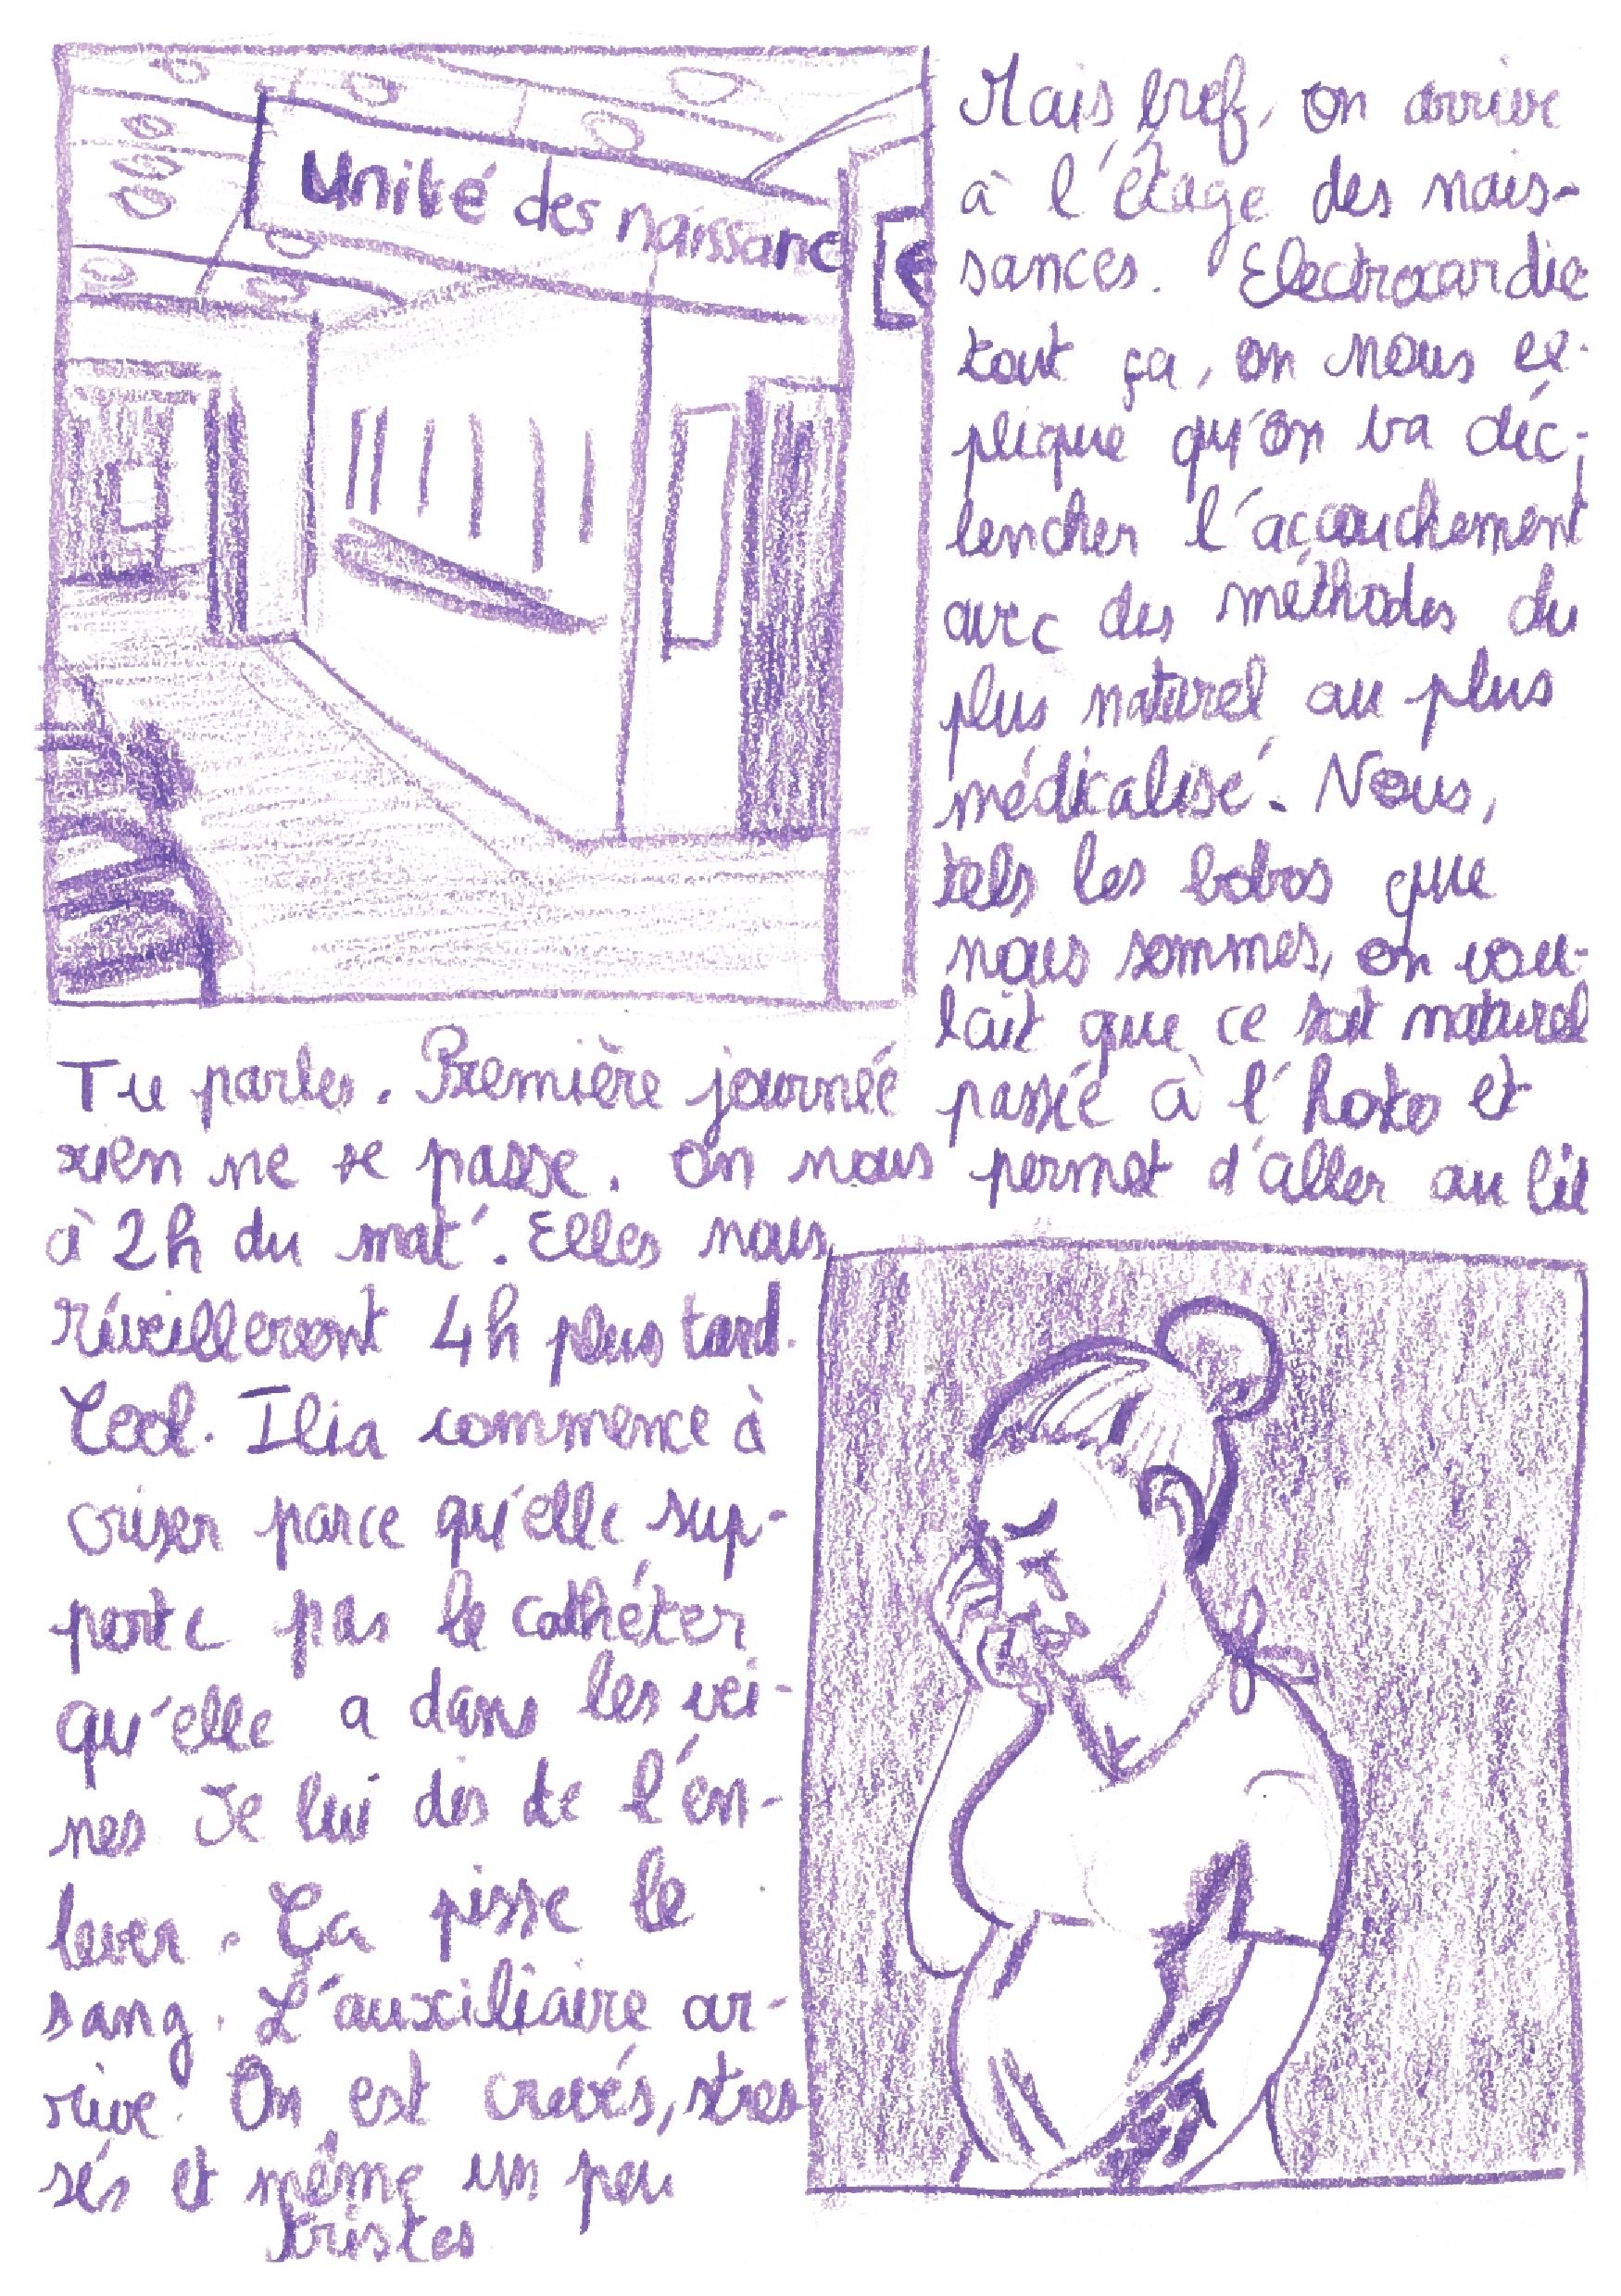 Unité des naissanc
Mais bref, on arrive
à l'étage des nais-
sances. Electrocardie
tout ça, on nous ex-
plique qu'on va déc-
lencher l'accouchement
avec des méthodes du
plus naturel au plus
médicalisé. Nous,
tels les bobos que
nous sommes, on vou-
lait que ce soit naturel
Tu parles. Première journée passée à l'hosto et
rien ne se passe. On nous permet d'aller au lit
à 2h du mat'. Elles nous
réveilleront 4h plus tard.
Cool. Ilia commence à
criser parce qu'elle sup-
porte pas le cathéter
qu'elle a dans les vei-
nes Je lui dis de l'en-
lever. Ça pisse le
sang. L'auxiliaire ar-
rive. On est crevés, stres
sés et même un peu
tristes